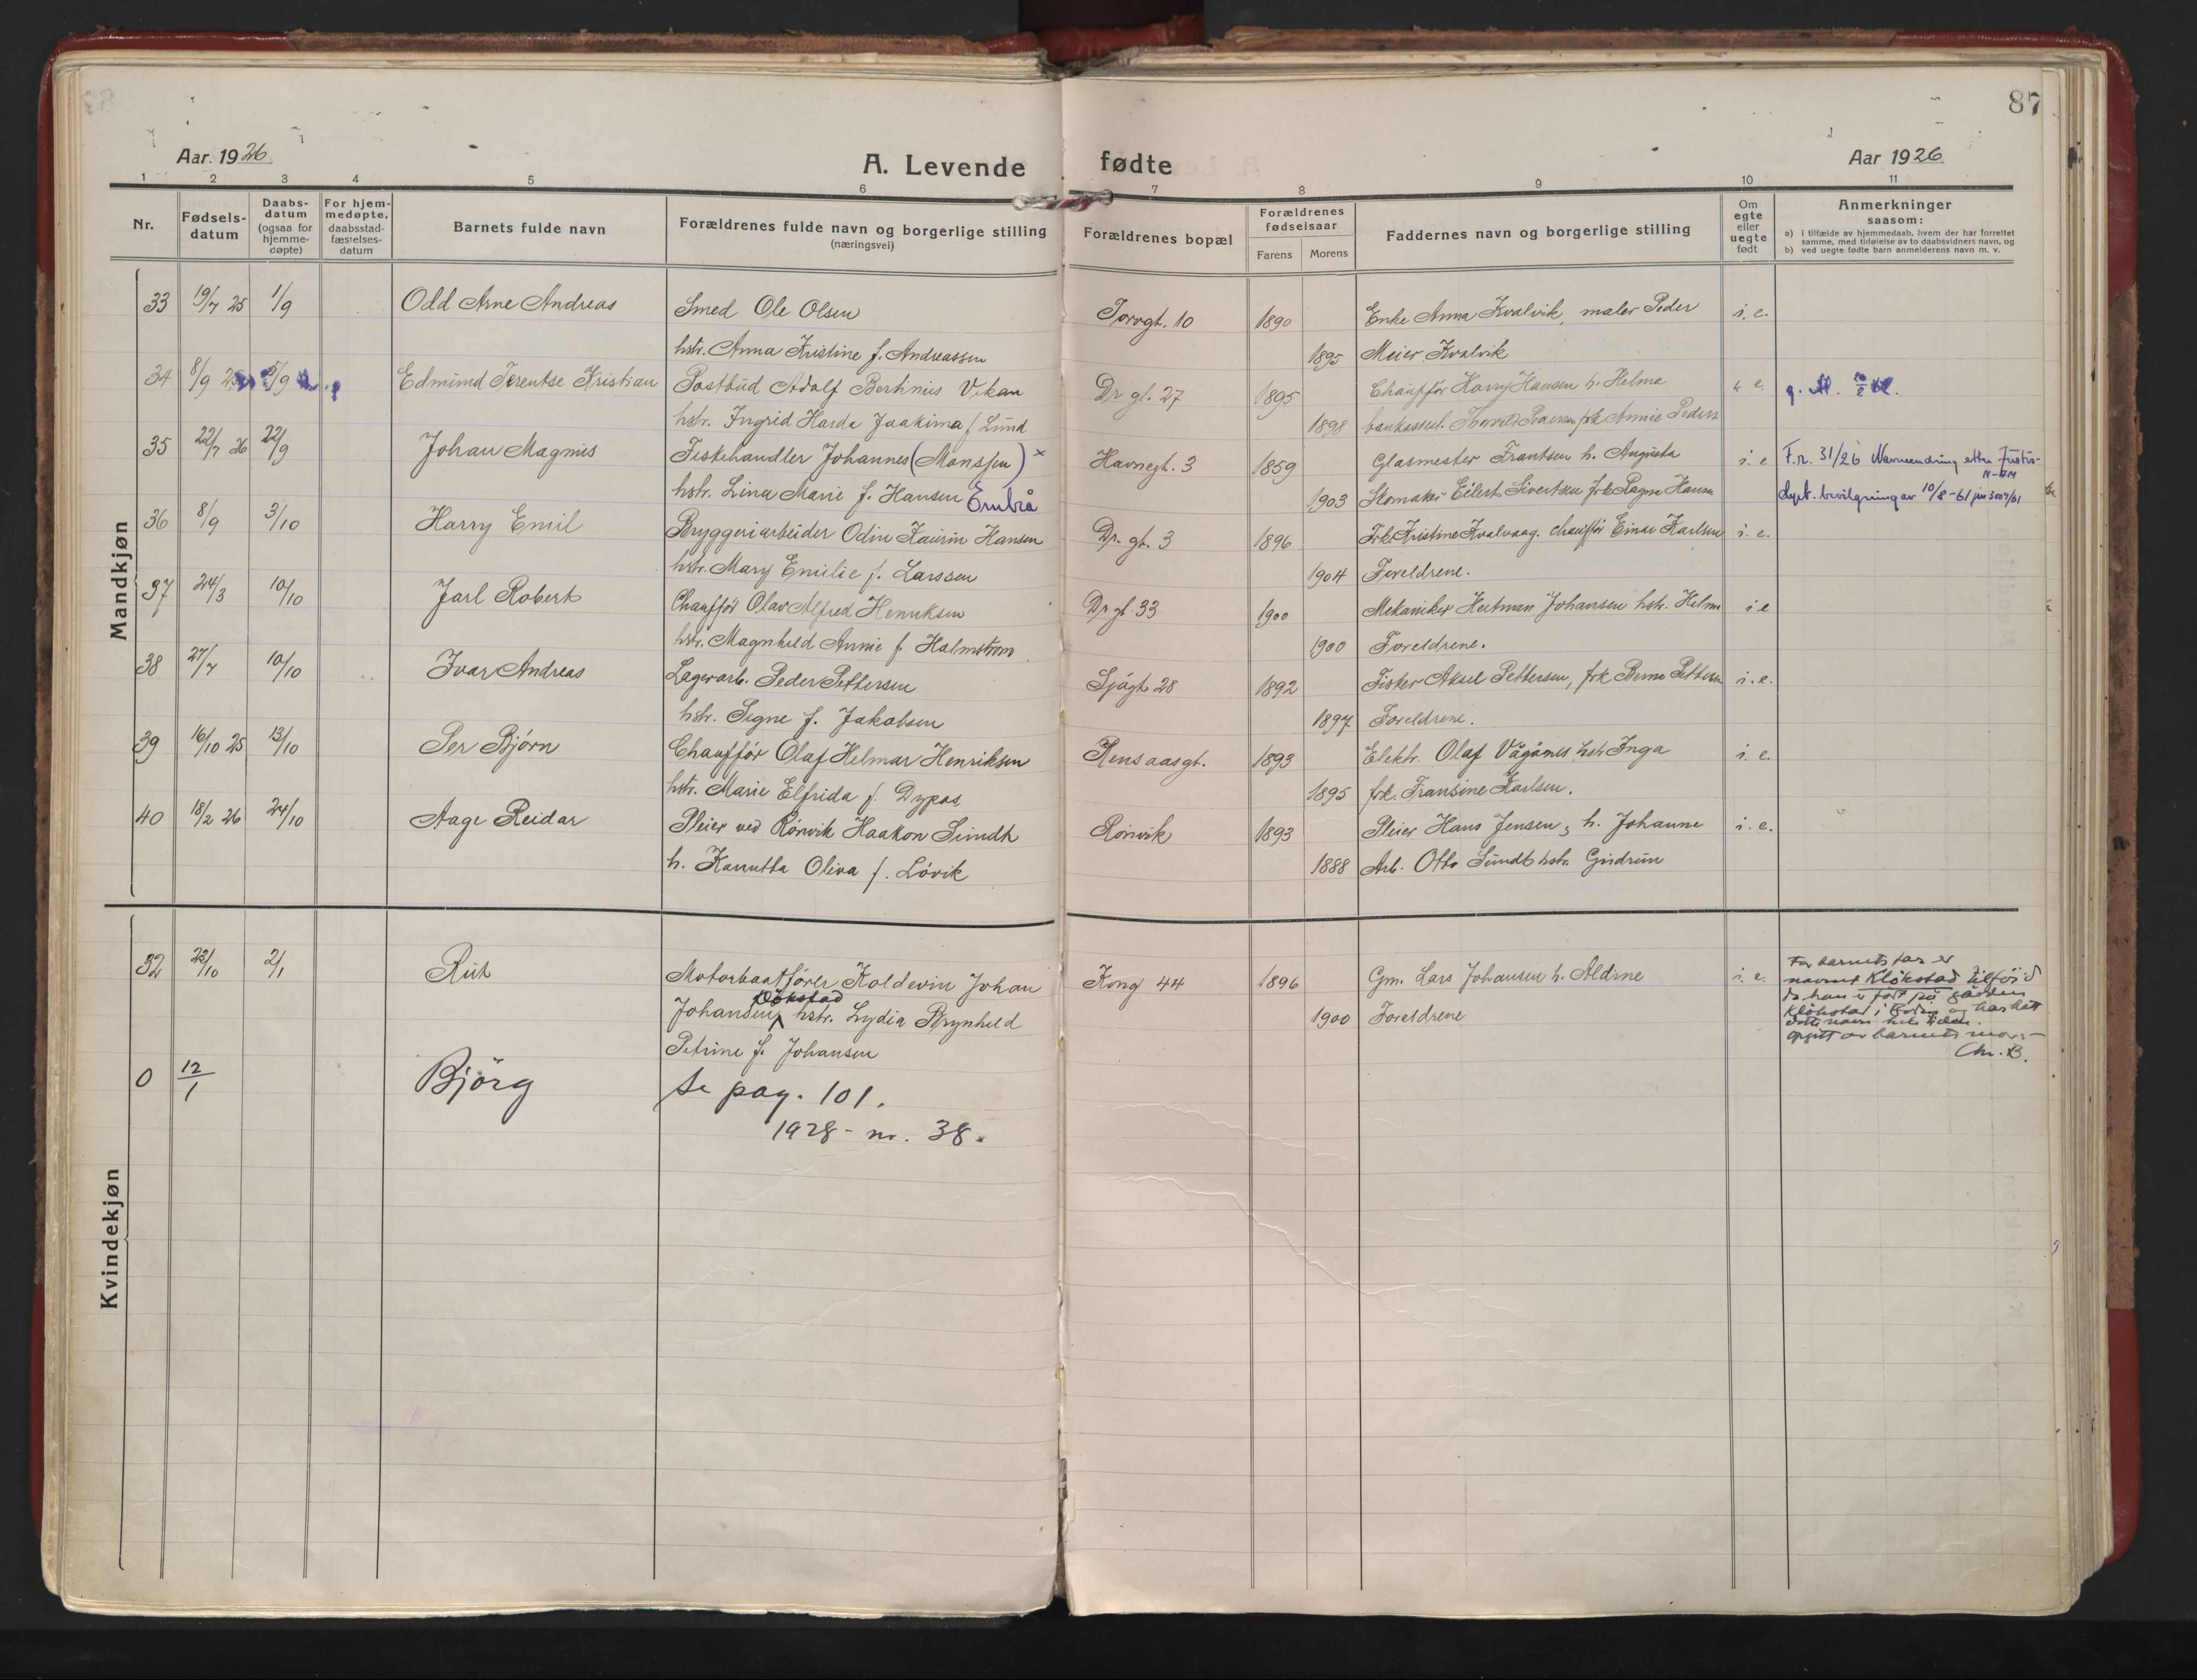 87
Aar. 1926
A. Levende fødte
Aar 1926
1 2 3 4 5 6 7 8 9 10 11
Nr.
Fødsels-datum
Daabs-datum (ogsaa for hjemme-døpte)
For hjem-medøpte, daabsstad-fæstelses-datum
Barnets fulde navn
Forældrenes fulde navn og borgerlige stilling (næringsvei)
Forældrenes bopæl
Forældrenes fødselsaar
Farens
Morens
Faddernes navn og borgerlige stilling
Om egte eller uegte født
Anmerkninger
saasom:
a) i tilfælde av hjemmedaab, hvem der har forrettet samme, med tilføielse av to daabsvidners navn, og
b) ved uegte fødte barn anmelderens navn m. v.
Mandkjøn
33 19/7 25 1/9 Odd Arne Andreas Smed Ole Olsen Torvgt. 10 1890 Enke Anna Kvalvik, maler Peder i. e.
hstr. Anna Kristine f. Andreassen 1895 Meier Kvalvik
34 8/9 25 5/9 Edmund Terentse Kristian Postbud Adolf Berthnius Vikan Dr gt. 27 1895 Chauffør Harry Hansen h. Helma e.
hstr. Ingrid Harda Joakima f Lund 1898 Annie Peders
35 22/7 26 22/9 Johan Magnus Fiskehandler Johannes (Monssen) x Havnegt. 3 1859 Glasmester Frantsen h. Augusta i. e F.r. 31/26 Navneendring etter Justis-
hstr. Lina Marie f. Hansen Enubrå 1903 Skomaker Eilert Sivertsen frk Ragna Hansen dept. bevilgning av 10/8-61 jnr 3009/61
36 8/9 3/10 Harry Emil Bryggeriarbeider Odin Kaurin Hansen Dr. gt. 3 1896 Frk. Kristine Kvalvaag. Chauffør Einar Karlsen i. e.
hstr. Mary Emilie f. Larssen 1904 Foreldrene.
37 24/3 10/10 Jarl Robert Chauffør Olav Alfred Henriksen Dr gt 33 1900 Mekaniker Hertman Johansen hstr. Helma i e
hstr. Magnhild Annie f. Halmstrøm 1900 Foreldrene.
38 27/7 10/10 Ivar Andreas Lagerarb. Peder Pettersen Sjøgt 28 1892 Fisker Aksel Pettersen, frk Berna Pettersen i. e.
hstr. Signe f. Jakobsen 1897 Foreldrene.
39 16/10 25 13/10 Per Bjørn Chauffør Olaf Helmar Henriksen Rensaasgt. 1893 Elektr. Olaf Vågånes hstr Inga i. e.
hstr. Marie Elfrida f. Dypos 1895 frk. Fransine Karlsen.
40 18/2 26 24/10 Aage Reidar Pleier ved Rønvik Haakon Sundt Rønvik 1893 Pleier Hans Jensen, h. Johanne i. e.
h. Kanutta Oliva f. Løvik 1888 Arb. Otto Sundt hstr. Gudrun
Kvindekjøn
32 23/10 2/1 Rut Motorbaatfører Koldevin Johan Kong 44 1896 Gm. Lars Johansen h. Aldine i. e.
Johansen, Kløkstad hstr. Lydia Brynhild 1900 Foreldrene
Petrine f. Johansen
For barnets far er
navnet Kløkstad tilføid
da han er født på gården
Kløkstad i Bodin og har hat
dette navn hele tiden.
Opgitt av barnets mor.-
Chr. B.
0 12/1 Bjørg Se pag. 101.
1928 - nr. 38.